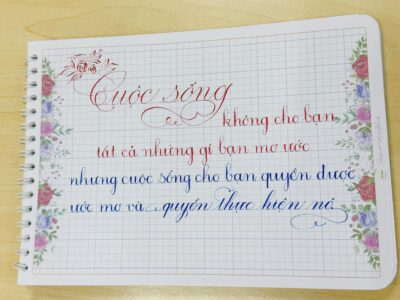 Cuộc sống
không cho bạn
tất cả những gì bạn mơ ước
nhưng cuộc sống cho bạn quyền được
ước mơ và quyền thực hiện nó.